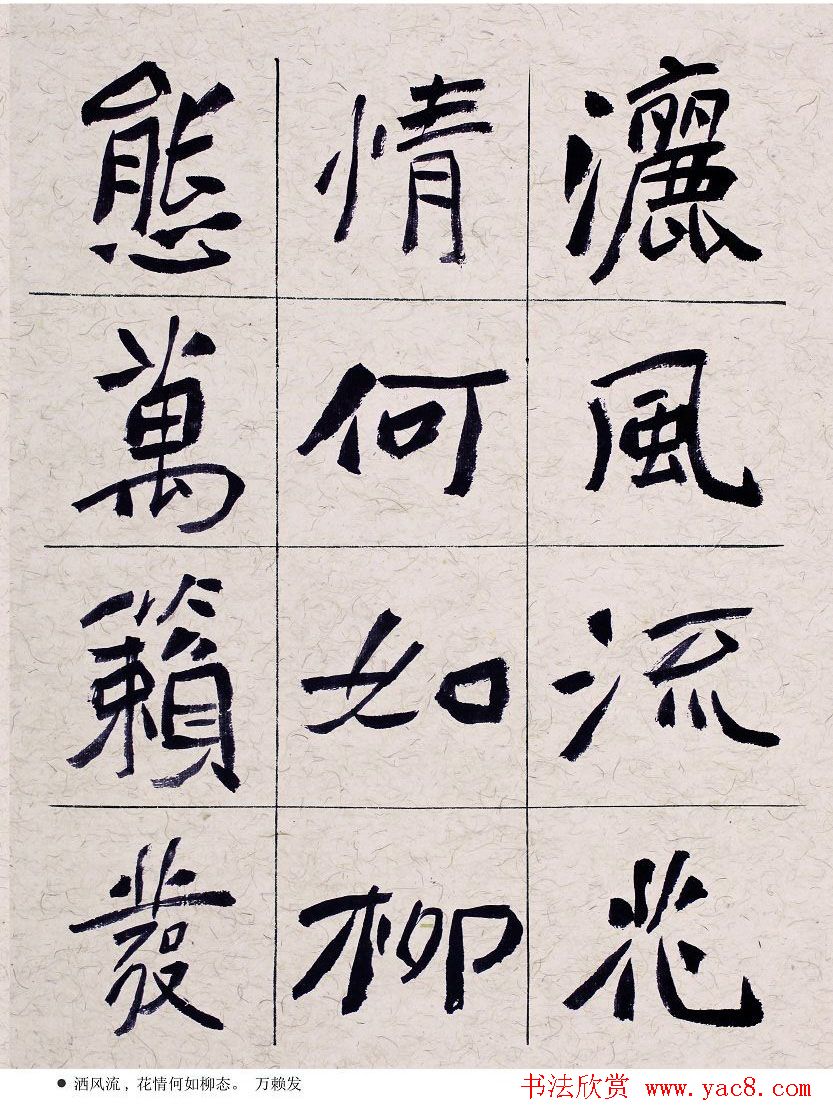 灑風流花
情何如柳
態萬籟發
● 洒风流，花情何如柳态。 万赖发
书法欣赏 www.yac8.com